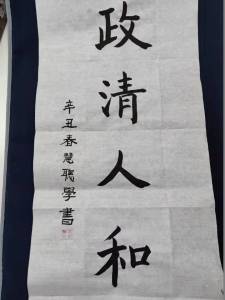 政清人和
辛丑春慧聪學書